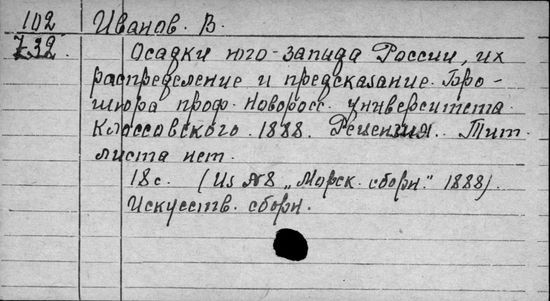 102 Иванов. В.
732 Осадки юго-запада России, их
распределение и предсказание. Бро-
шюра проф. Новоросс. университета
Клоссовского. 1888. Рецензия. Тит.
листа нет.
18 с. (Из №8 „Морск. сборн." 1888).
Искусств. сборн.